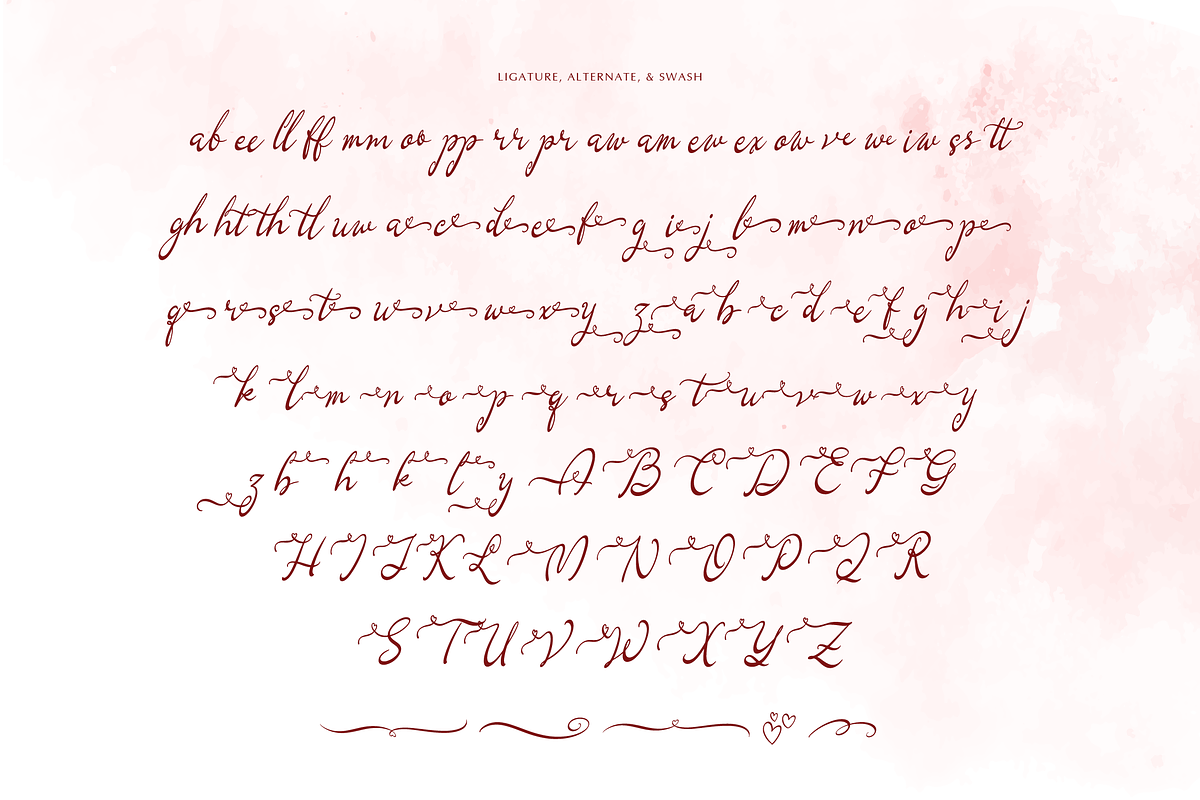 LIGATURE, ALTERNATE, & SWASH
ab ee ll ff mm oo pp rr pr aw am ew ex ow ve we iw ss tt
gh ht th tl uw a c d e f g i j l m n o p
q r s t u v w x y z a b c d e f g h i j
k l m n o p q r s t u v w x y
z b h k l y A B C D E F G
H I J K L M N O P Q R
S T U V W X Y Z